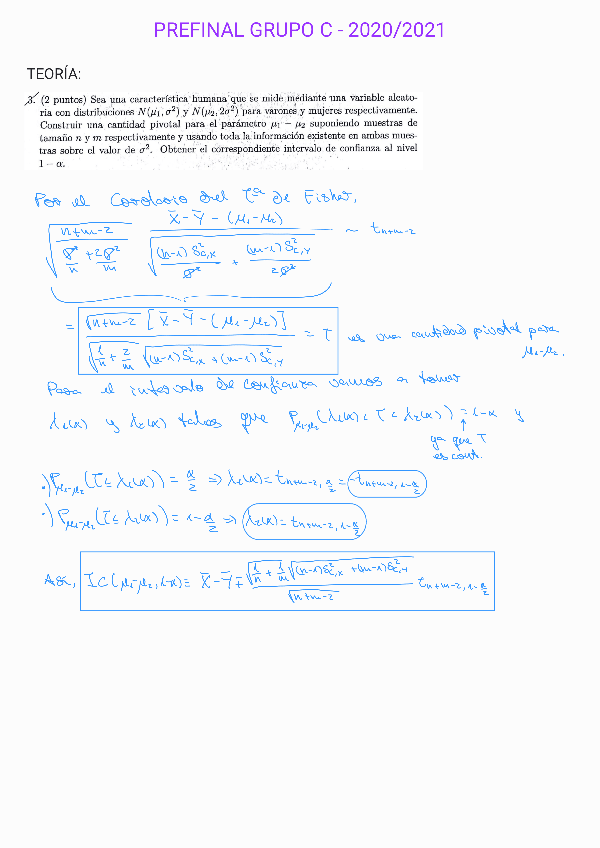 PREFINAL GRUPO C - 2020/2021
TEORÍA:
3. (2 puntos) Sea una característica humana que se mide mediante una variable aleato-
ria con distribuciones N(μ₁, σ²) y N(μ₂, 2σ²) para varones y mujeres respectivamente.
Construir una cantidad pivotal para el parámetro μ₁ − μ₂ suponiendo muestras de
tamaño n y m respectivamente y usando toda la información existente en ambas mues-
tras sobre el valor de σ². Obtener el correspondiente intervalo de confianza al nivel
1 − α.
Por el Corolario del Tª de Fisher,
√(n+m-2) / √(σ²/n + 2σ²/m) · (X̄ - Ȳ - (μ₁-μ₂)) / √((n-1)S²c,x / σ² + (m-1)S²c,Y / 2σ²) ~ tn+m-2
= √(n+m-2) [X̄ - Ȳ - (μ₁-μ₂)] / √(1/n + 2/m) √((n-1)S²c,x + (m-1)S²c,Y) = T es una cantidad pivotal para μ₁-μ₂.
Para el intervalo de confianza vamos a tomar
λ₁(α) y λ₂(α) tales que Pμ₁-μ₂(λ₁(α) < T < λ₂(α)) = 1-α y
ya que T
es cont.
·) Pμ₁-μ₂(T ≤ λ₁(α)) = α/2 ⇒ λ₁(α) = tn+m-2, α/2 = -tn+m-2, 1-α/2
·) Pμ₁-μ₂(T ≤ λ₂(α)) = 1-α/2 ⇒ λ₂(α) = tn+m-2, 1-α/2
Así, IC(μ₁-μ₂, 1-α) = X̄ - Ȳ ∓ √(1/n + 1/m) √((n-1)S²c,x + (m-1)S²c,Y) / √(n+m-2) tn+m-2, 1-α/2